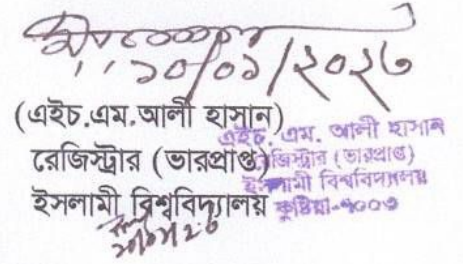 ১০/০১/২০২৩
(এইচ.এম.আলী হাসান)
রেজিস্ট্রার (ভারপ্রাপ্ত)
ইসলামী বিশ্ববিদ্যালয়
এইচ. এম. আলী হাসান
রেজিস্ট্রার (ভারপ্রাপ্ত)
ইসলামী বিশ্ববিদ্যালয়
কুষ্টিয়া-৭০০৩